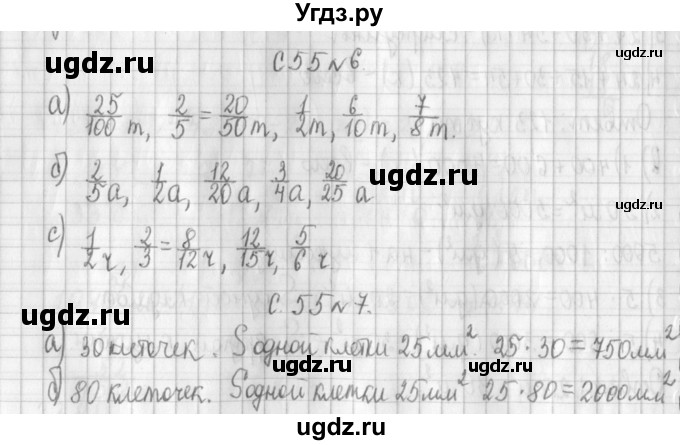 Угдз.ру
ugdz.ru
С 55 № 6.
ugdz.ru
ugdz.ru
а) 25/100 т, 2/5 = 20/50 т, 1/2 т, 6/10 т, 7/8 т.
ugdz.ru
б) 2/5 а, 1/2 а, 12/20 а, 3/4 а, 20/25 а
ugdz.ru
ugdz.ru
с) 1/2 ч, 2/3 = 8/12 ч, 12/15 ч, 5/6 ч
ugdz.ru
С. 55 № 7.
ugdz.ru
а) 30 клеточек. S одной клетки 25 мм². 25 · 30 = 750 мм²
ugdz.ru
ugdz.ru
б) 80 клеточек. S одной клетки 25 мм² 25 · 80 = 2000 мм²
ugdz.ru